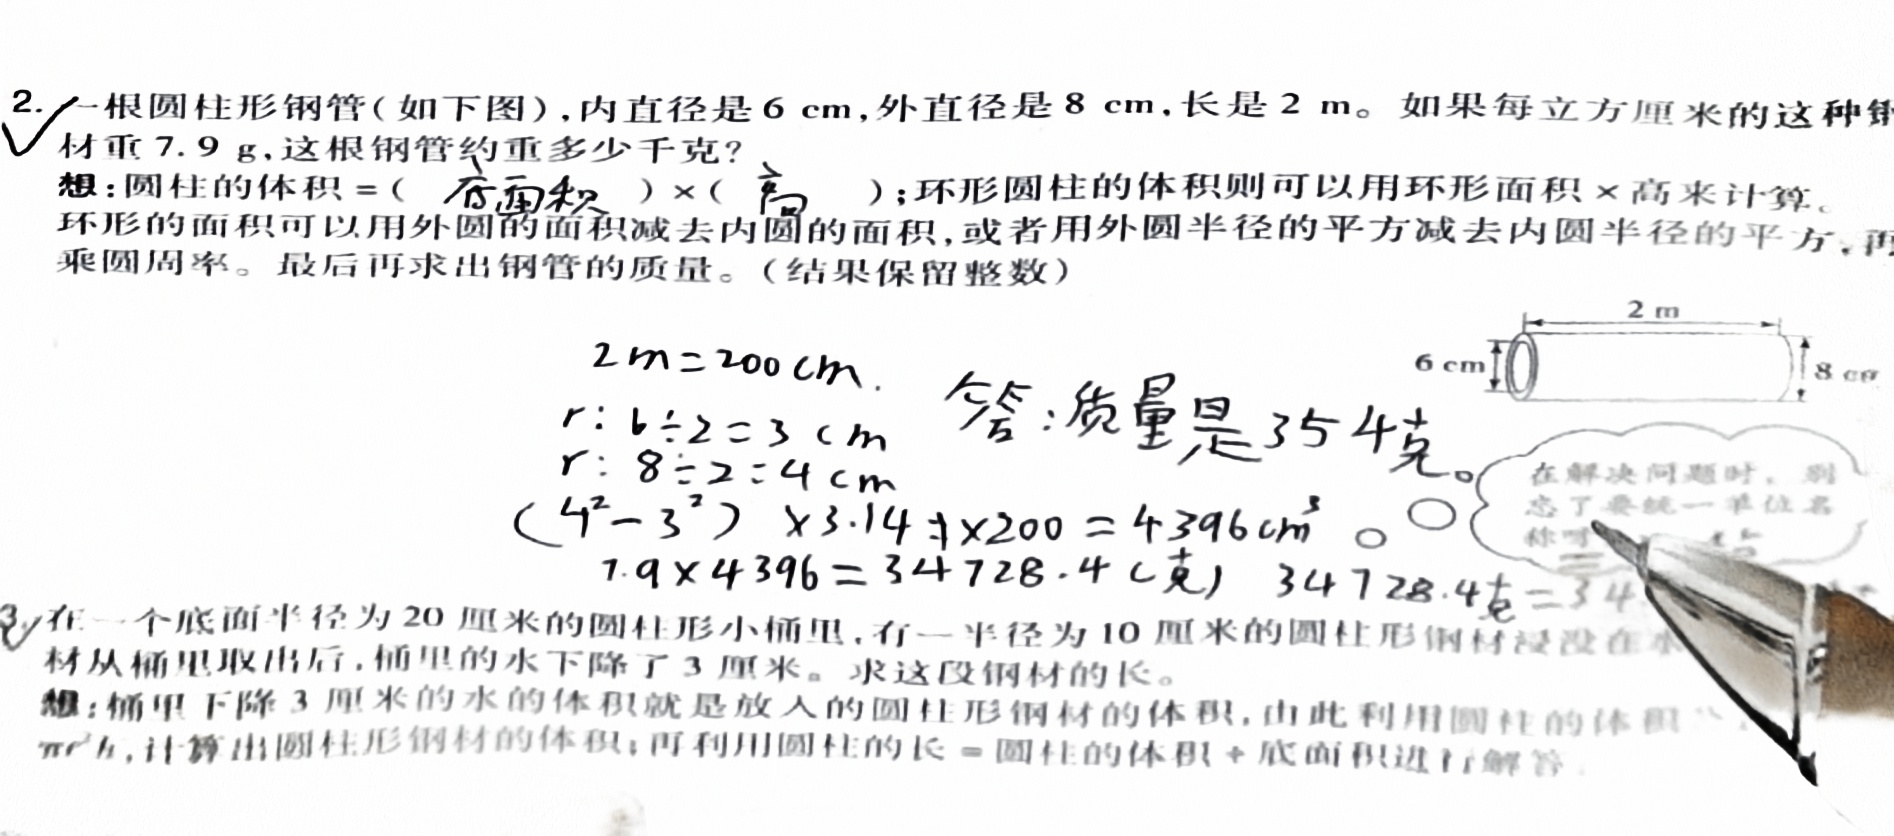 2. 一根圆柱形钢管(如下图),内直径是 6 cm,外直径是 8 cm,长是 2 m。如果每立方厘米的这种钢
材重 7.9 g,这根钢管约重多少千克?
想:圆柱的体积=( 底面积 )×( 高 );环形圆柱的体积则可以用环形面积×高来计算。
环形的面积可以用外圆的面积减去内圆的面积,或者用外圆半径的平方减去内圆半径的平方,再
乘圆周率。最后再求出钢管的质量。(结果保留整数)
2 m
6 cm
8 cm
2m=200cm.
r: 6÷2=3cm
答:质量是354克。
r: 8÷2=4cm
在解决问题时,别
忘了要统一单位名
称
(4²-3²) ×3.14 ×200=4396cm³
7.9×4396=34728.4(克) 34728.4克=34
3. 在一个底面半径为 20 厘米的圆柱形小桶里,有一半径为 10 厘米的圆柱形钢材浸没在水
材从桶里取出后,桶里的水下降了 3 厘米。求这段钢材的长。
想:桶里下降 3 厘米的水的体积就是放入的圆柱形钢材的体积,由此利用圆柱的体积
πr²h,计算出圆柱形钢材的体积;再利用圆柱的长=圆柱的体积÷底面积进行解答.